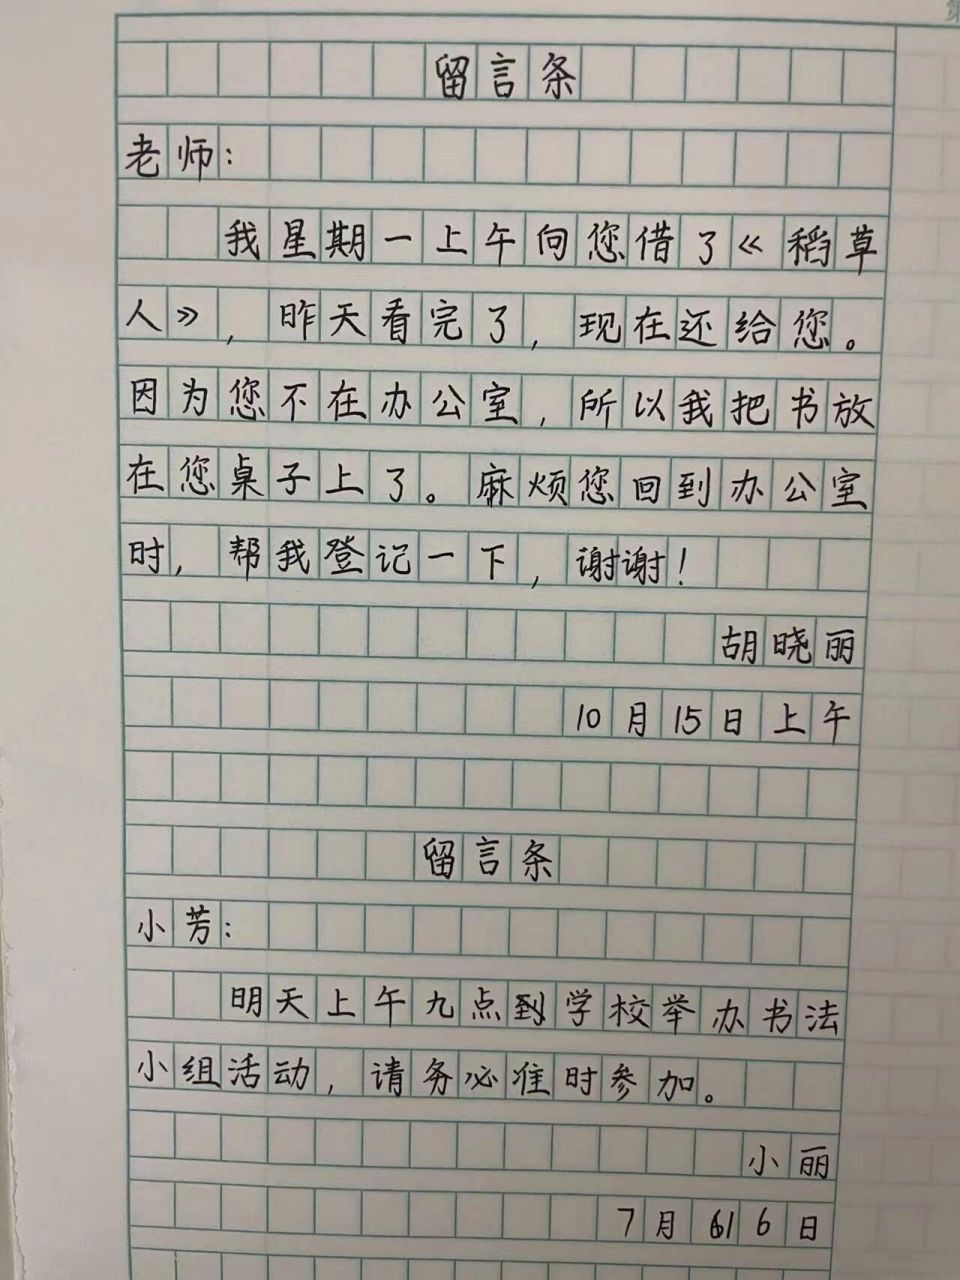 留言条
老师：
我星期一上午向您借了《稻草
人》，昨天看完了，现在还给您。
因为您不在办公室，所以我把书放
在您桌子上了。麻烦您回到办公室
时，帮我登记一下，谢谢！
胡晓丽
10月15日上午
留言条
小芳：
明天上午九点到学校举办书法
小组活动，请务必准时参加。
小丽
7月 6日